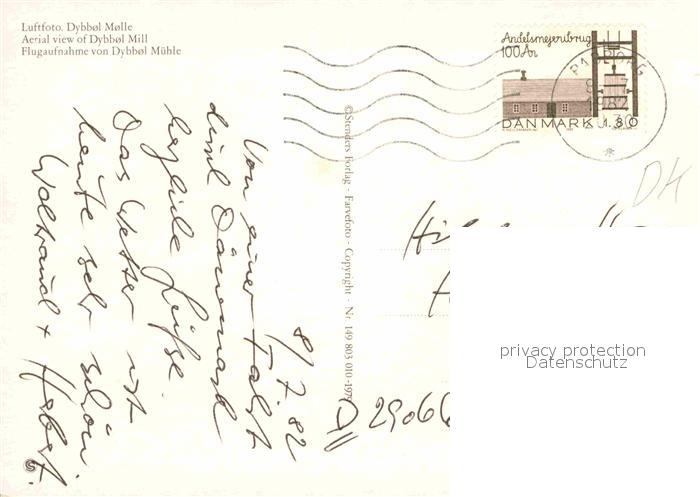 Luftfoto. Dybbøl Mølle
Aerial view of Dybbøl Mill
Flugaufnahme von Dybbøl Mühle
Andelsmejeribrug
100 År
DANMARK 1.80
PADBORG
1982
DH
©Stenders Forlag - Farvefoto - Copyright - Nr 149 803 010 -197
8/7.82
Von einer Fahrt
durch Dänemark
herzliche Grüße.
Das Wetter ist
heute sehr schön.
Waltraud + Hubert.
D 29066
privacy protection
Datenschutz